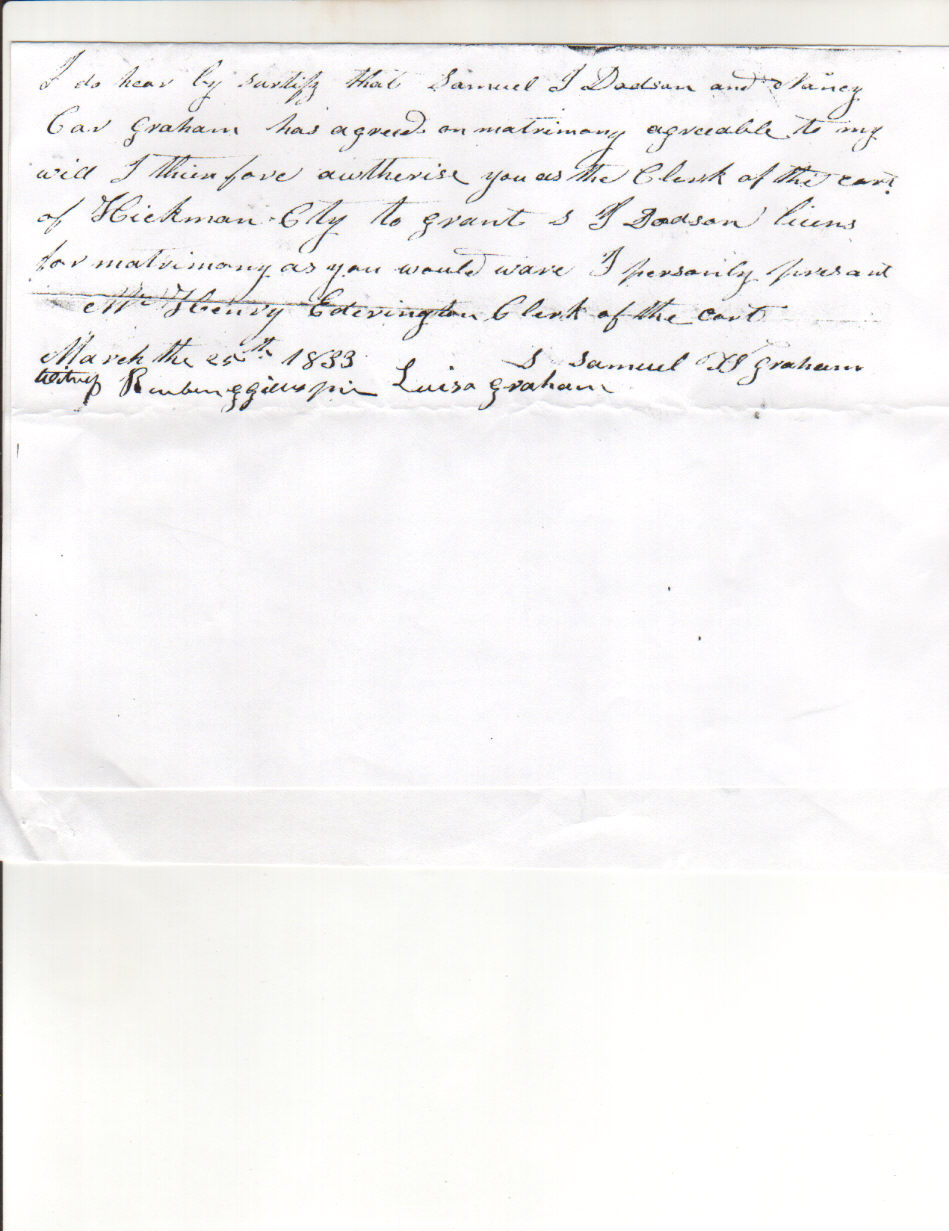 I do hear by sartify that Samuel J Dodson and Nancy
Car Graham has agreed on matrimony agreeable to my
will I thierfore awtherise you as the Clerk of the cort
of Hickman Cty to grant S J Dodson licens
for matrimony as you would ware I personly presant
Mr Henry Ederington Clerk of the cort
March the 25th 1833 S Samuel H Graham
witness Reubin Luisa graham